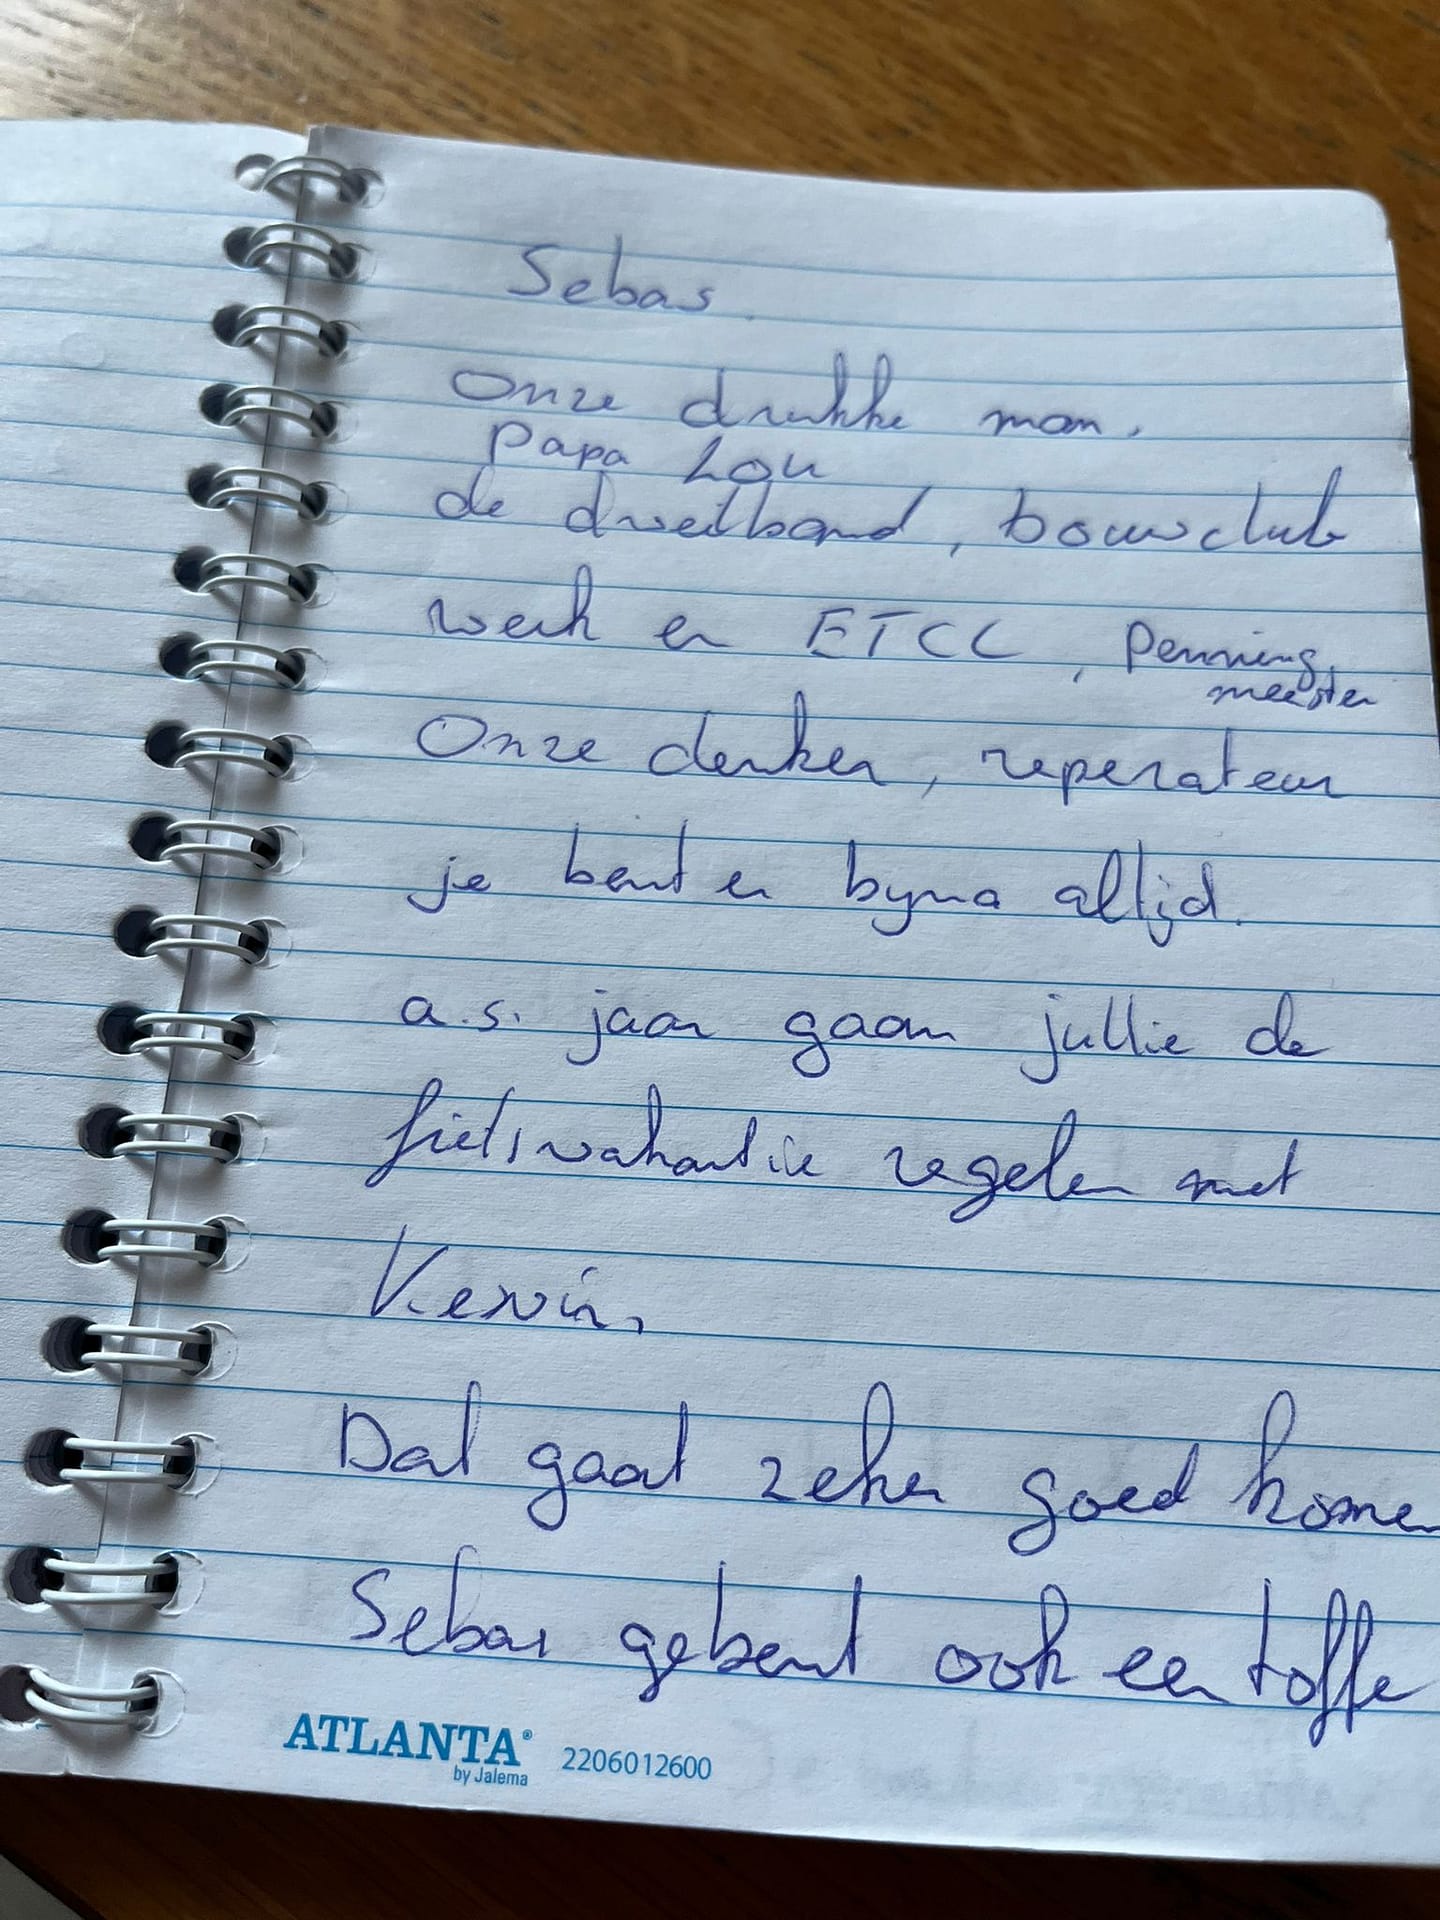 Sebas
Onze drukke man,
Papa Lou
de dweilband, bouwclub
werk en ETCC, Penning
meester
Onze denker, reperateur
je bent er byna altijd.
a.s. jaar gaan jullie de
fietsvakantie regelen met
Kevin,
Dat gaat zeker goed komen
Sebas gebent ook een toffe
ATLANTA® 2206012600
by Jalema